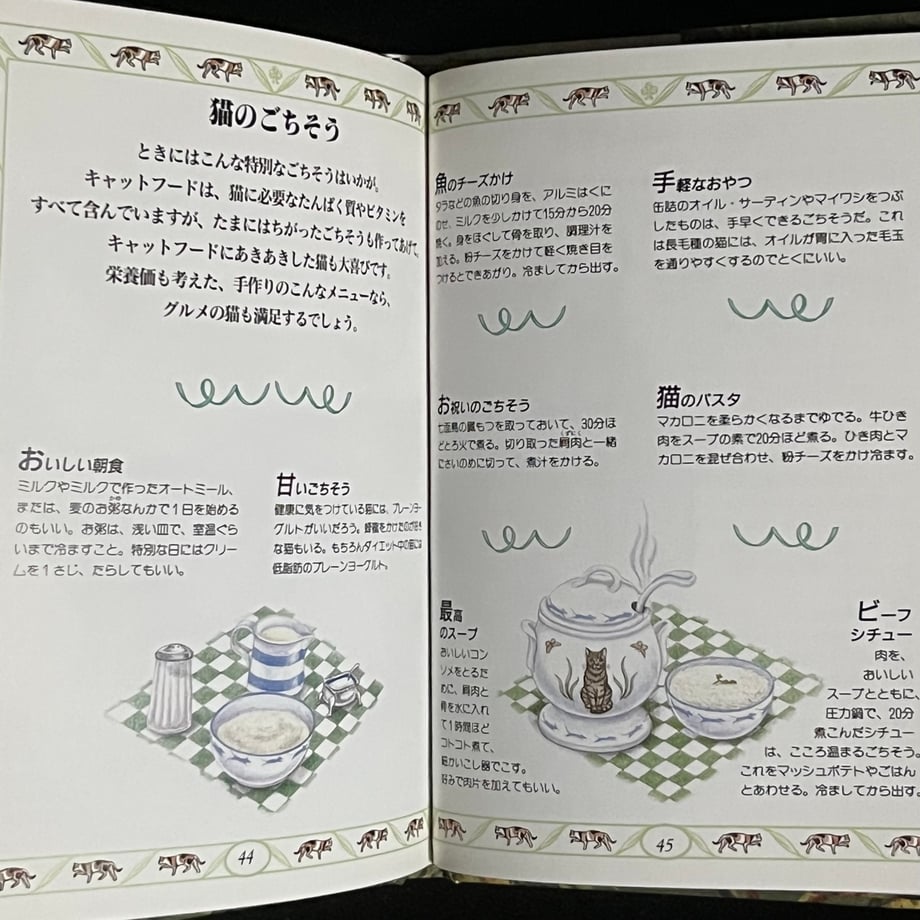 猫のごちそう
ときにはこんな特別なごちそうはいかが。
キャットフードは、猫に必要なたんぱく質やビタミンを
すべて含んでいますが、たまにはちがったごちそうも作ってあげて、
キャットフードにあきあきした猫も大喜びです。
栄養価も考えた、手作りのこんなメニューなら、
グルメの猫も満足するでしょう。
おいしい朝食
ミルクやミルクで作ったオートミール、
または、麦のお粥なんかで1日を始める
かゆ
のもいい。お粥は、浅い皿で、室温ぐら
いまで冷ますこと。特別な日にはクリー
ムを1さじ、たらしてもいい。
甘いごちそう
健康に気をつけている猫には、プレーンヨー
グルトがいいだろう。蜂蜜をかけたのが好き
な猫もいる。もちろんダイエット中の猫には
低脂肪のプレーンヨーグルト。
44
魚のチーズかけ
タラなどの魚の切り身を、アルミはくに
のせ、ミルクを少しかけて15分から20分
焼く。身をほぐして骨を取り、調理汁を
加える。粉チーズをかけて軽く焼き目を
つけるとできあがり。冷ましてから出す。
手軽なおやつ
缶詰のオイル・サーディンやマイワシをつぶ
したものは、手早くできるごちそうだ。これ
は長毛種の猫には、オイルが胃に入った毛玉
を通りやすくするのでとくにいい。
お祝いのごちそう
七面鳥の臓もつを取っておいて、30分ほ
どとろ火で煮る。切り取った肩肉と一緒
にさいのめに切って、煮汁をかける。
猫のパスタ
マカロニを柔らかくなるまでゆでる。牛ひき
肉をスープの素で20分ほど煮る。ひき肉とマ
カロニを混ぜ合わせ、粉チーズをかけ冷ます。
最高
のスープ
おいしいコン
ソメをとるた
めに、肩肉と
骨を水に入れ
て1時間ほど
コトコト煮て、
細かいこし器でこす。
好みで肉片を加えてもいい。
ビーフ
シチュー
肉を、
おいしい
スープとともに、
圧力鍋で、20分
煮こんだシチュー
は、こころ温まるごちそう。
これをマッシュポテトやごはん
とあわせる。冷ましてから出す。
45